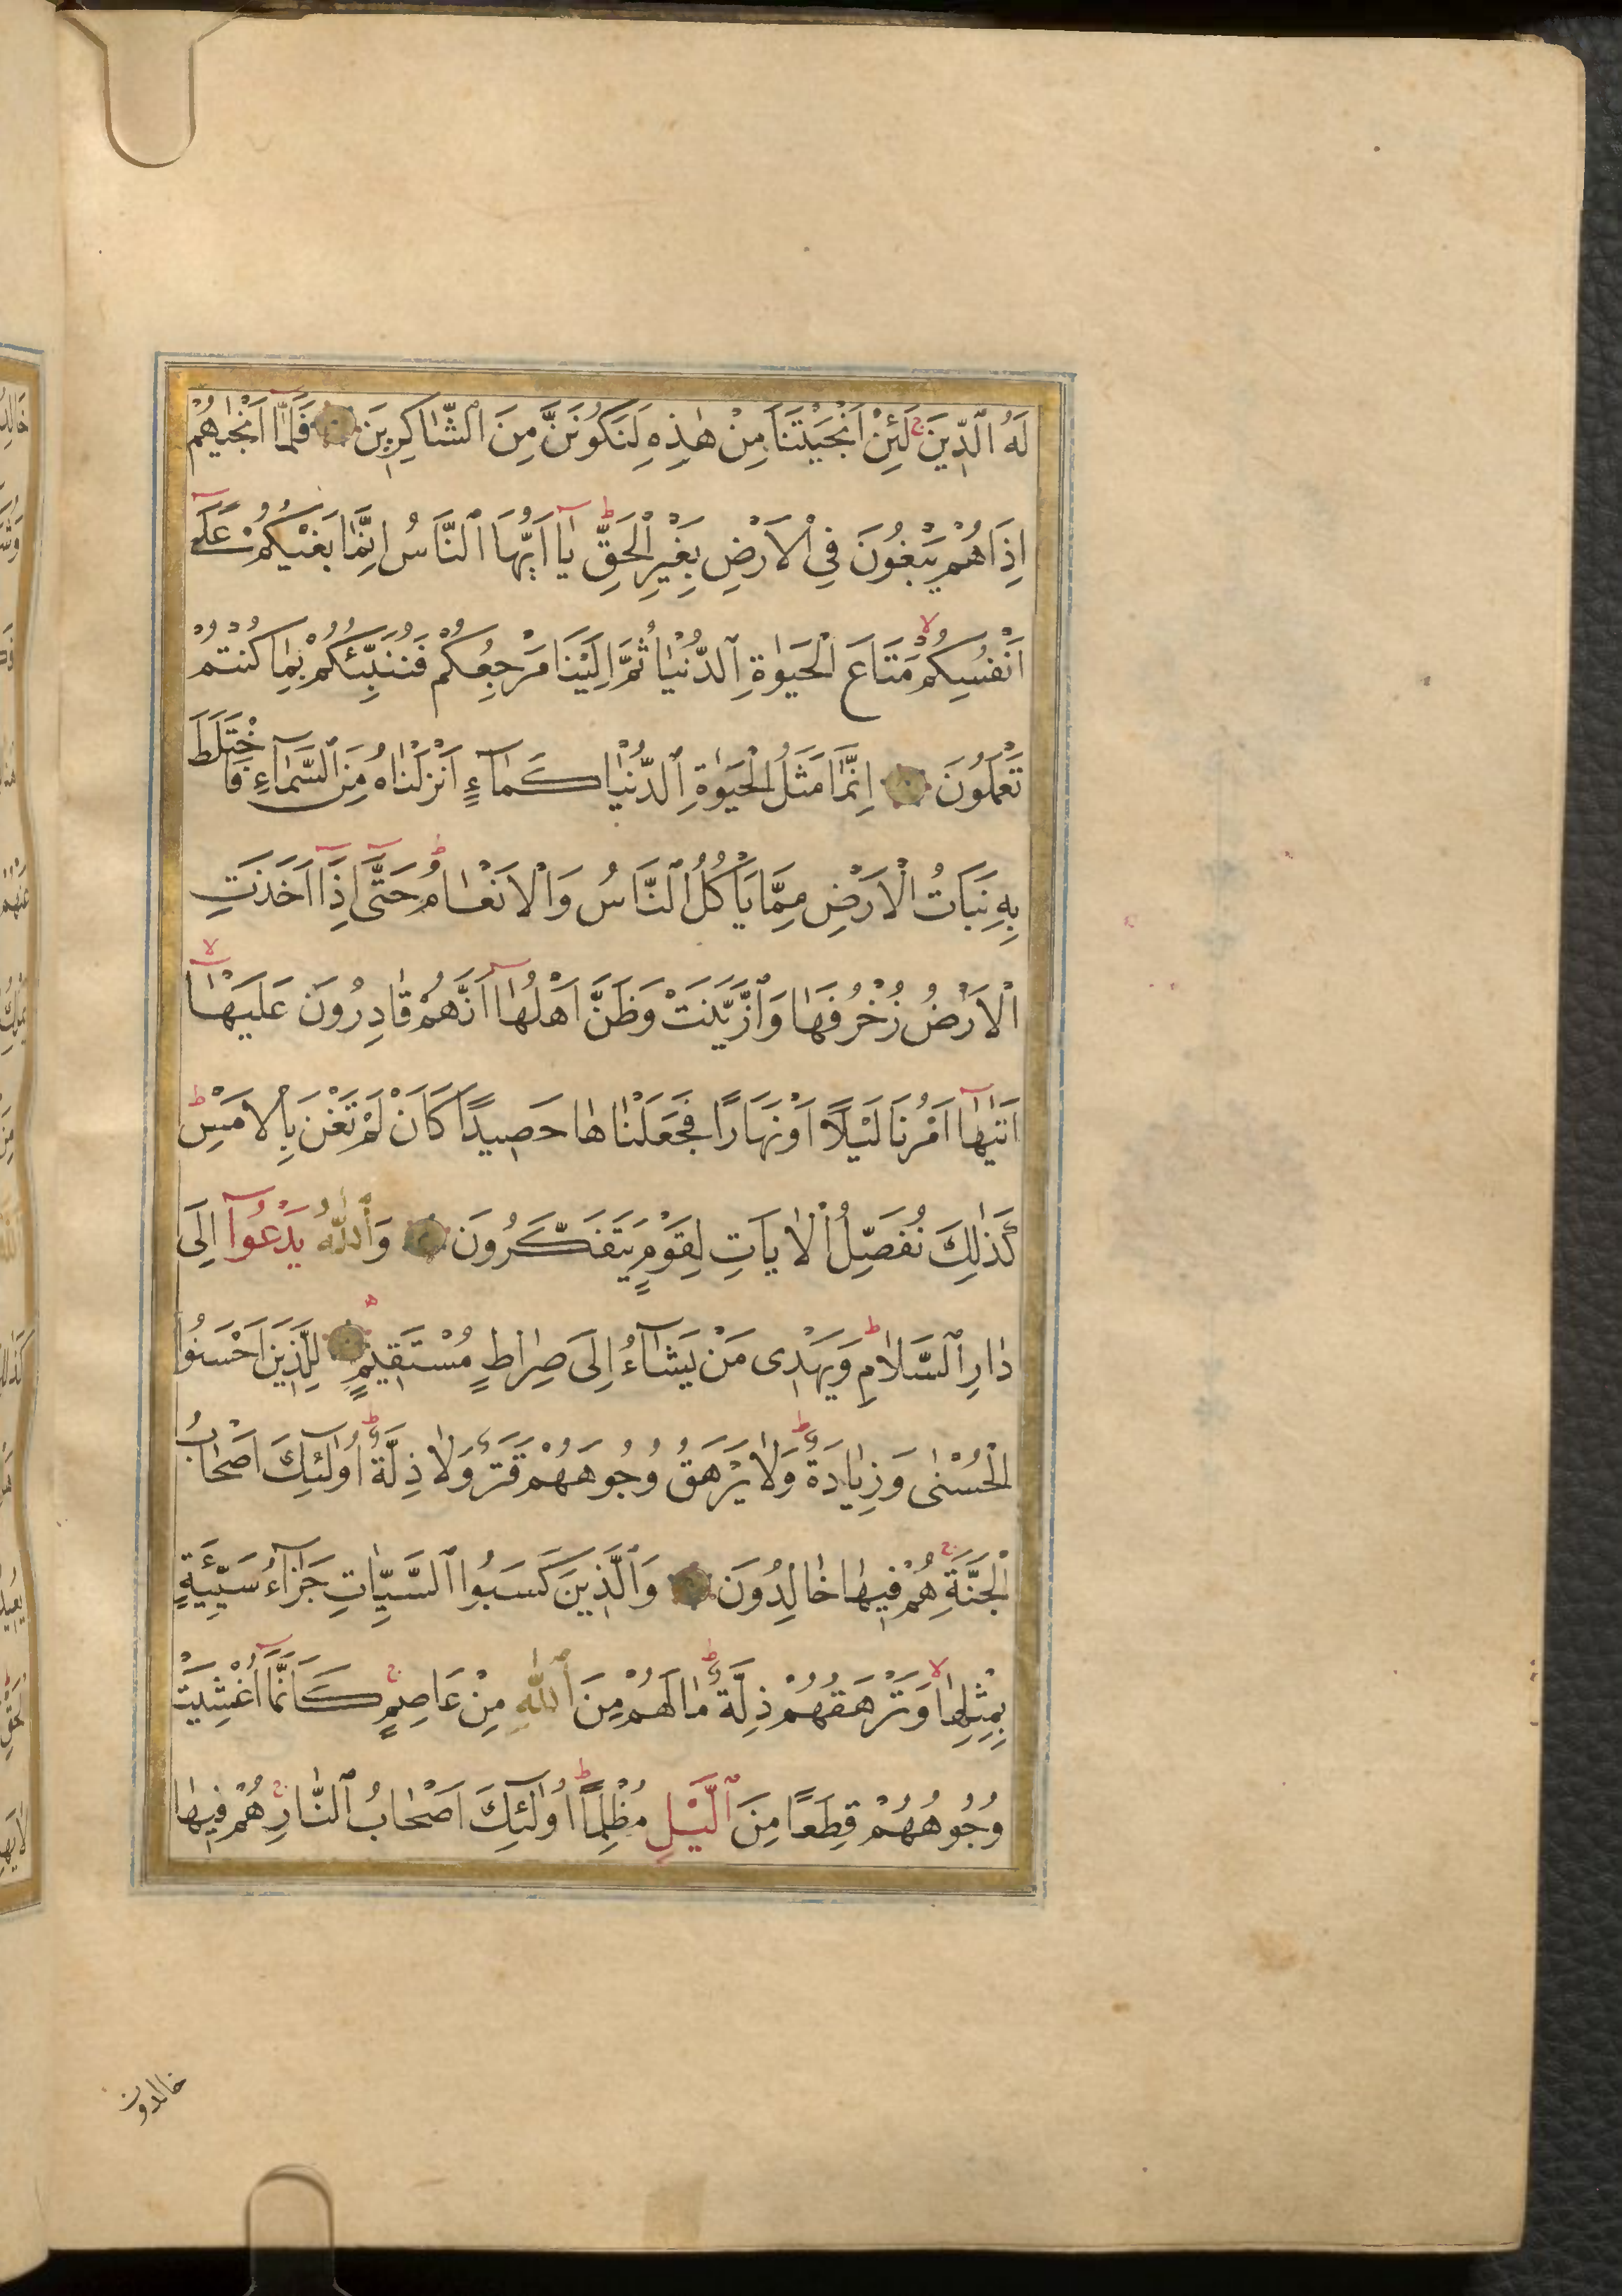 لَهُ ٱلدِّينَ ج لَئِنْ اَنْجَيْتَنَا مِنْ هٰذِهِ لَنَكُونَنَّ مِنَ ٱلشَّاكِرِينَ فَلَمَّآ اَنْجٰيهُمْ
اِذَا هُمْ يَبْغُونَ فِى ٱلْاَرْضِ بِغَيْرِ ٱلْحَقِّ ط يَآ اَيُّهَا ٱلنَّاسُ اِنَّمَا بَغْيُكُمْ عَلٰٓى
اَنْفُسِكُمْ لا مَتَاعَ ٱلْحَيٰوةِ ٱلدُّنْيَا ثُمَّ اِلَيْنَا مَرْجِعُكُمْ فَنُنَبِّئُكُمْ بِمَا كُنْتُمْ
تَعْمَلُونَ اِنَّمَا مَثَلُ ٱلْحَيٰوةِ ٱلدُّنْيَا كَمَآءٍ اَنْزَلْنَاهُ مِنَ ٱلسَّمَآءِ فَاخْتَلَطَ
بِهِ نَبَاتُ ٱلْاَرْضِ مِمَّا يَاْكُلُ ٱلنَّاسُ وَٱلْاَنْعَامُ ط حَتّٰٓى اِذَآ اَخَذَتِ
ٱلْاَرْضُ زُخْرُفَهَا وَٱزَّيَّنَتْ وَظَنَّ اَهْلُهَآ اَنَّهُمْ قَادِرُونَ عَلَيْهَآ لا
اَتٰيهَآ اَمْرُنَا لَيْلًا اَوْ نَهَارًا فَجَعَلْنَاهَا حَصِيدًا كَاَنْ لَمْ تَغْنَ بِٱلْاَمْسِ ط
كَذٰلِكَ نُفَصِّلُ ٱلْاٰيَاتِ لِقَوْمٍ يَتَفَكَّرُونَ وَٱللّٰهُ يَدْعُوٓا اِلَى
دَارِ ٱلسَّلَامِ ط وَيَهْدِى مَنْ يَشَآءُ اِلَى صِرَاطٍ مُسْتَقِيمٍ لِلَّذِينَ اَحْسَنُوا
ٱلْحُسْنٰى وَزِيَادَةٌ ط وَلَا يَرْهَقُ وُجُوهَهُمْ قَتَرٌ وَلَا ذِلَّةٌ ط اُولٰٓئِكَ اَصْحَابُ
ٱلْجَنَّةِ ج هُمْ فِيهَا خَالِدُونَ وَٱلَّذِينَ كَسَبُوا ٱلسَّيِّاٰتِ جَزَآءُ سَيِّئَةٍ
بِمِثْلِهَا لا وَتَرْهَقُهُمْ ذِلَّةٌ ط مَا لَهُمْ مِنَ ٱللّٰهِ مِنْ عَاصِمٍ ج كَاَنَّمَآ اُغْشِيَتْ
وُجُوهُهُمْ قِطَعًا مِنَ ٱلَّيْلِ مُظْلِمًا ط اُولٰٓئِكَ اَصْحَابُ ٱلنَّارِ ج هُمْ فِيهَا
خالدون